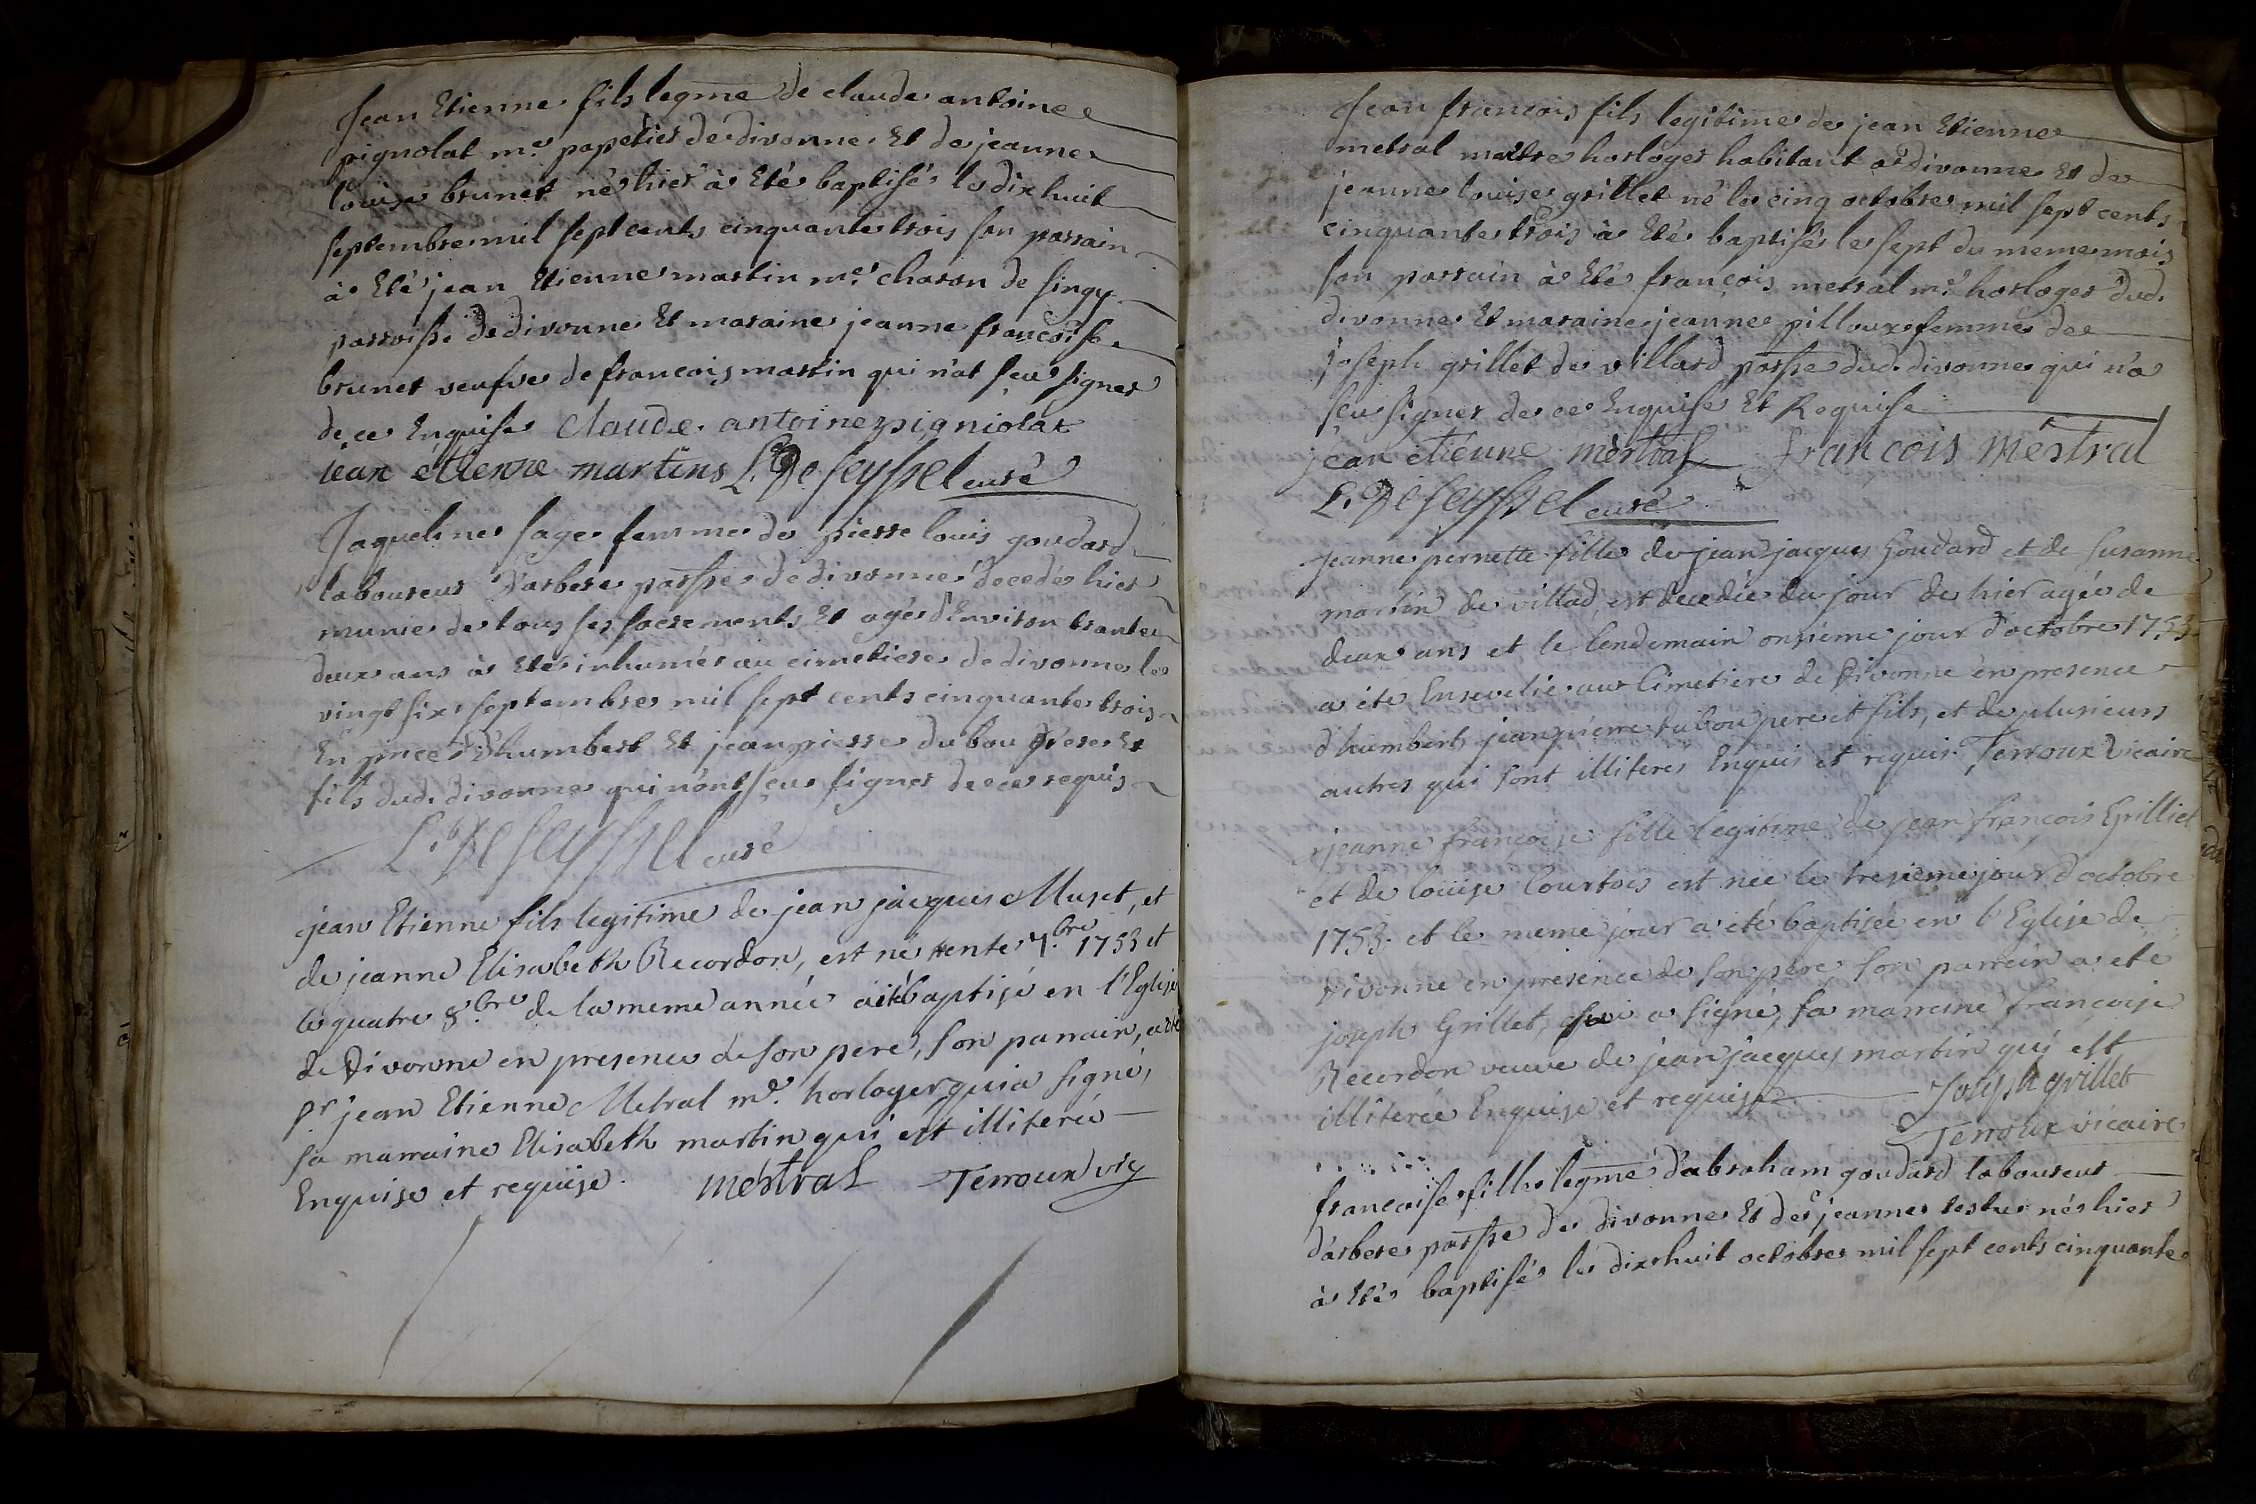 Jean Etienne fils legme de claude antoine
pignolat me papetier de divonne Et de jeanne
louise brunet né hier à Eté baptisé le dix huit
septembre mil sept cents cinquante trois son parrain
à Eté jean Etienne martin me charon de singy
parroisse de divonne Et maraine jeanne francoise
brunet veufve de francois martin qui n'at sçeu signer
de ce Enquise claude antoine pigniolat
jean étienne martins L. De seyssel curé
Jaqueline sage femme de pierre louis goudard
laboureur d'arbere parsse de divonne decedée hier
munie de tous ses sacrements Et agée d'Environ trante
deux ans à Eté inhumée au cimetiere de divonne le
vingt six septembre mil sept cents cinquante trois
En pnce d'humbert Et jean pierre dubou pere Et
fils dud. divonne qui n'ont sçeu signer de ce requis
L. De seyssel curé
jean Etienne fils legitime de jean jacques Muset, et
de jeanne Elisabeth Recordon, est né trente 7.bre 1753 et
le quatre 8.bre de la meme année a été baptisé en l'Eglise
de Divonne en presence de son pere, son parrain, a été
pr jean Etienne Metral me. horloger qui a signé,
sa marraine Elisabeth martin qui est illiterée
Enquise et requise. mestral Terroux vic
Jean francois fils legitime de jean Etienne
metral maitre horloger habitant à divonne Et de
jeanne louise grillet né le cinq octobre mil sept cents
cinquante trois à Eté baptisé le sept du meme mois
son parrain à Eté françois metral me. horloger dud.
divonne Et maraine jeanne pilloux femme de
joseph grillet de villard parsse dud. divonne qui n'a
sçeu signer de ce Enquise Et Requise
jean etienne mestral francois mestral
L. De seyssel curé
Jeanne pernette fille de jean jacques Goudard et de susanne
martin de villad est decedée du jour de hier agée de
deux ans et le lendemain onsieme jour d'octobre 1753
a été Ensevelie au Cimetiere de Divonne en presence
d'humbert, jean pierre dubou pere et fils, et de plusieurs
autres qui sont illiteres Enquis et requis. Terroux Vicaire
jeanne francoise fille legitime de jean francois Grilliet
et de loüise Courtois est née le tresieme jour d'octobre
1753. et le meme jour a été baptisée en l'Eglise de
Divonne en presence de son pere son parrein a ete
joseph Grillet, qui a signé, sa marreine francoise
Recordon veuve de jean jacques martin qui est
illiterée Enquise et requise Joseph grillet
Terroux vicaire
francoise fille legme d'abraham goudard laboureur
d'arbere parsse de divonne Et de jeanne née hier
à Eté baptisée le dix huit octobre mil sept cents cinquante